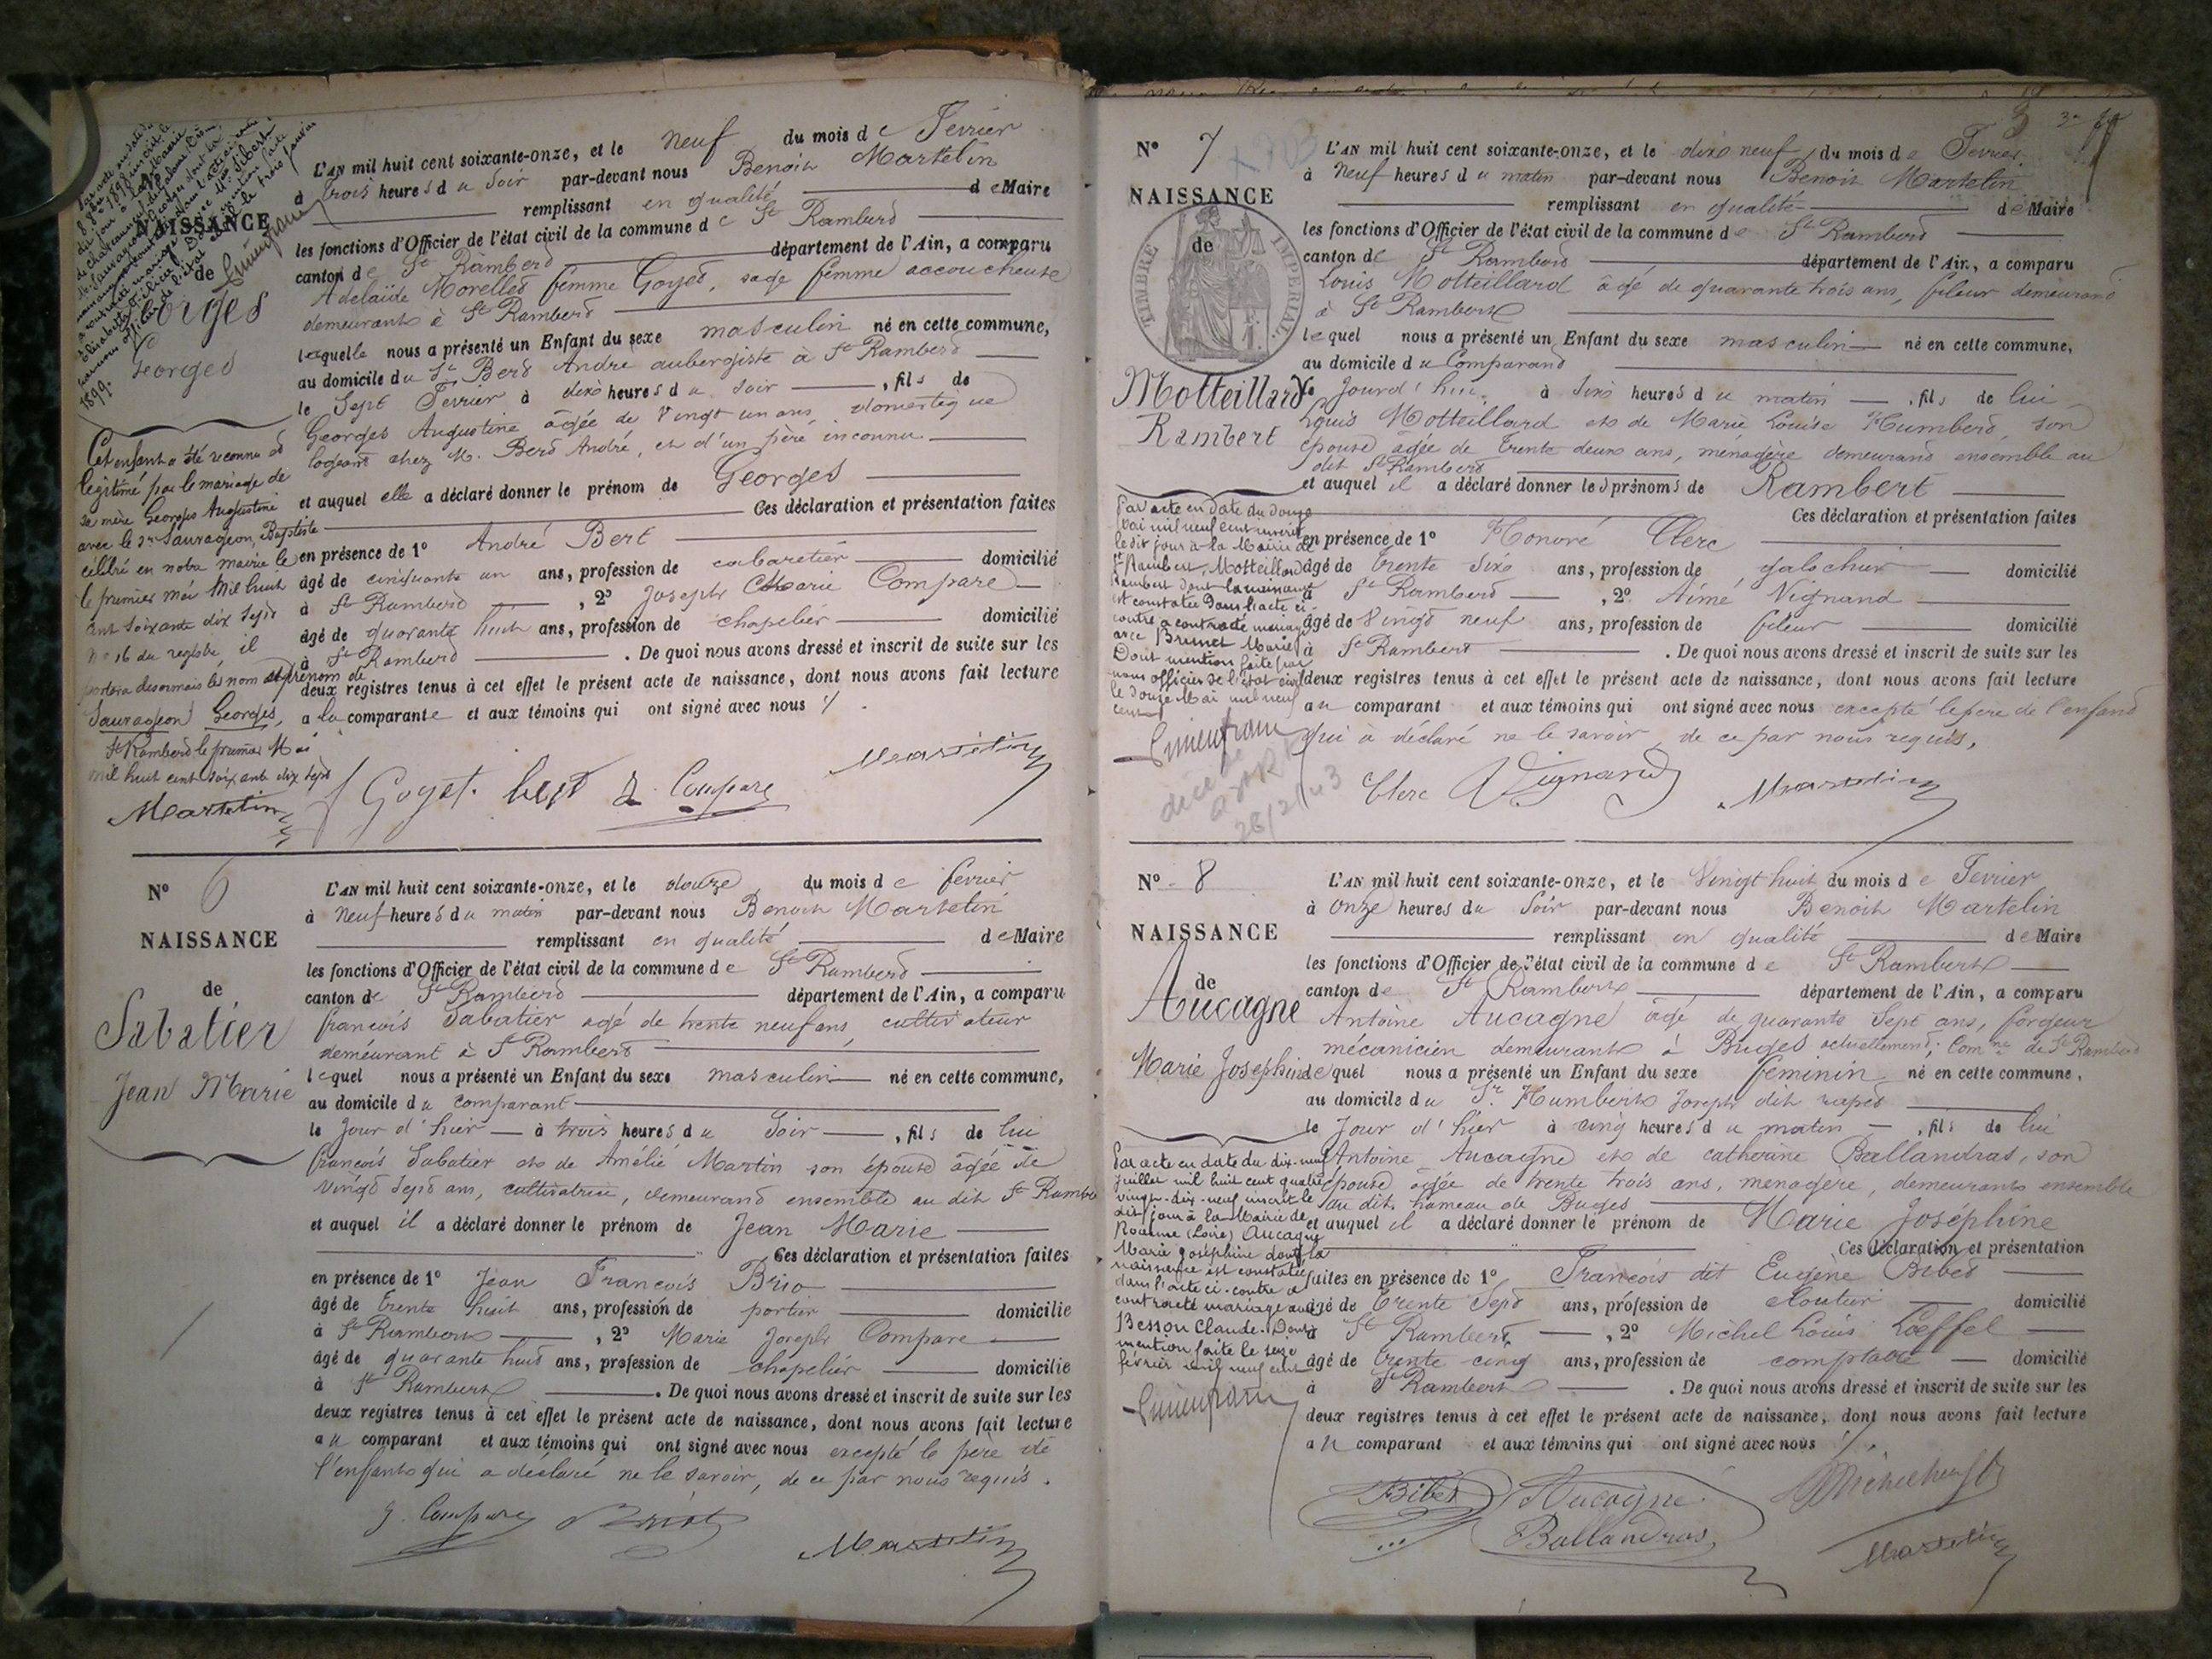 NAISSANCE
de
Georges
Georges
Cet enfant a été reconnu et
légitimé par le mariage de
sa mère Georges Augustine
avec le sr Sauvageon, Baptiste
célébré en notre mairie le
le premier mai mil huit
cent soixante dix sept
n° 16 du registre, il
portera desormais les nom et prénom de
Sauvageon Georges,
St Rambert le premier Mai
mil huit cent soixante dix sept
Martelin
L'AN mil huit cent soixante-onze, et le neuf du mois de Fevrier
à trois heures du Soir par-devant nous Benoit Martelin
remplissant en qualité de Maire
les fonctions d'Officier de l'état civil de la commune de St Rambert
canton de St Rambert département de l'Ain, a comparu
Adelaïde Morellet femme Goyet, sage femme accoucheuse
demeurant à St Rambert
laquelle nous a présenté un Enfant du sexe masculin né en cette commune,
au domicile du Sr Bert André aubergiste à St Rambert
le Sept Fevrier à dix heures du soir , fils de
Georges Augustine âgée de Vingt un ans, domestique
logeant chez M. Bert André, et d'un père inconnu
et auquel elle a déclaré donner le prénom de Georges
Ces déclaration et présentation faites
en présence de 1° André Bert
âgé de cinquante un ans, profession de cabaretier domicilié
à St Rambert , 2° Joseph Marie Compare
âgé de quarante huit ans, profession de chapelier domicilié
à St Rambert . De quoi nous avons dressé et inscrit de suite sur les
deux registres tenus à cet effet le présent acte de naissance, dont nous avons fait lecture
a la comparante et aux témoins qui ont signé avec nous
f Goyet. bert J. Compare Martelin
N° 6
NAISSANCE
de
Sabatier
Jean Marie
L'AN mil huit cent soixante-onze, et le douze du mois de fevrier
à Neuf heures du matin par-devant nous Benoit Martelin
remplissant en qualité de Maire
les fonctions d'Officier de l'état civil de la commune de St Rambert
canton de St Rambert département de l'Ain, a comparu
francois Sabatier agé de trente neuf ans, cultivateur
demeurant à St Rambert
lequel nous a présenté un Enfant du sexe masculin né en cette commune,
au domicile du comparant
le Jour d'hier à trois heures du Soir , fils de lui
francois Sabatier et de Amélie Martin son épouse âgée de
Vingt sept ans, cultivatrice, demeurant ensemble au dit St Rambert
et auquel il a déclaré donner le prénom de Jean Marie
Ces déclaration et présentation faites
en présence de 1° Jean Francois Briot
âgé de trente huit ans, profession de portier domicilié
à St Rambert , 2° Marie Joseph Compare
âgé de quarante huit ans, profession de chapelier domicilié
à St Rambert . De quoi nous avons dressé et inscrit de suite sur les
deux registres tenus à cet effet le présent acte de naissance, dont nous avons fait lecture
au comparant et aux témoins qui ont signé avec nous excepté le père de
l'enfant qui a déclaré ne le savoir, de ce par nous requis.
J. Compare Briot
Martelin
N° 7
NAISSANCE
de
TIMBRE IMPERIAL.
Motteillard
Rambert
Par acte en date du douze
mai mil neuf cent inscrit
le dit jour à la Mairie de
St Rambert, Motteillard
Rambert dont la naissance
est constatée dans l'acte ci-
contre a contracté mariage
avec Brunet Marie
Dont mention faite par
nous officier de l'état civil
le douze Mai mil neuf
cent
28/2/43
L'AN mil huit cent soixante-onze, et le dix neuf du mois de Fevrier.
à Neuf heures du matin par-devant nous Benoit Martelin
remplissant en qualité de Maire
les fonctions d'Officier de l'état civil de la commune de St Rambert
canton de St Rambert département de l'Ain, a comparu
Louis Motteillard âgé de quarante trois ans, fileur demeurant
à St Rambert
lequel nous a présenté un Enfant du sexe masculin né en cette commune,
au domicile du Comparant
le Jourd'hui, à Six heures du matin , fils de lui
Louis Motteillard et de Marie Louise Humbert, son
épouse agée de trente deux ans, ménagère demeurant ensemble au
dit St Rambert
et auquel il a déclaré donner les prénoms de Rambert
Ces déclaration et présentation faites
en présence de 1° Honoré Clerc
âgé de trente six ans, profession de galochier domicilié
à St Rambert , 2° Aimé Vignand
âgé de Vingt neuf ans, profession de fileur domicilié
à St Rambert . De quoi nous avons dressé et inscrit de suite sur les
deux registres tenus à cet effet le présent acte de naissance, dont nous avons fait lecture
au comparant et aux témoins qui ont signé avec nous excepté le pere de l'enfant
qui à déclaré ne le savoir, de ce par nous requis,
Clerc Vignand Martelin
N° 8
NAISSANCE
de
Aucagne
Marie Josephine
Par acte en date du dix-neuf
Juillet mil huit cent quatre
vingt-dix-neuf inscrit le
dit jour à la Mairie de
Roanne (Loire) Aucagne
Marie Joséphine dont la
naissance est constatée
dans l'acte ci-contre a
contracté mariage avec
Besson Claude. Dont
mention faite le seize
février mil neuf cent
L'AN mil huit cent soixante-onze, et le Vingt huit du mois de Fevrier
à Onze heures du Soir par-devant nous Benoit Martelin
remplissant en qualité de Maire
les fonctions d'Officier de l'état civil de la commune de St Rambert
canton de St Rambert département de l'Ain, a comparu
Antoine Aucagne âgé de quarante sept ans, forgeur
mécanicien demeurant à Buges actuellement, Comne de St Rambert
lequel nous a présenté un Enfant du sexe féminin né en cette commune,
au domicile du Sr. Humbert Joseph dit
le Jour d'hier à cinq heures du matin , fils de lui
Antoine Aucagne et de catherine Ballandras, son
épouse agée de trente trois ans, ménagère, demeurant ensemble
au dit hameau de Buges
et auquel il a déclaré donner le prénom de Marie Joséphine
Ces déclaration et présentation
faites en présence de 1° Francois dit Eugène Bibet
âgé de trente Sept ans, profession de cloutier domicilié
à St Rambert , 2° Michel Louis Loeffel
âgé de trente cinq ans, profession de comptable domicilié
à St Rambert . De quoi nous avons dressé et inscrit de suite sur les
deux registres tenus à cet effet le présent acte de naissance, dont nous avons fait lecture
au comparant et aux témoins qui ont signé avec nous
Bibet Aucagne
Ballandras
Martelin